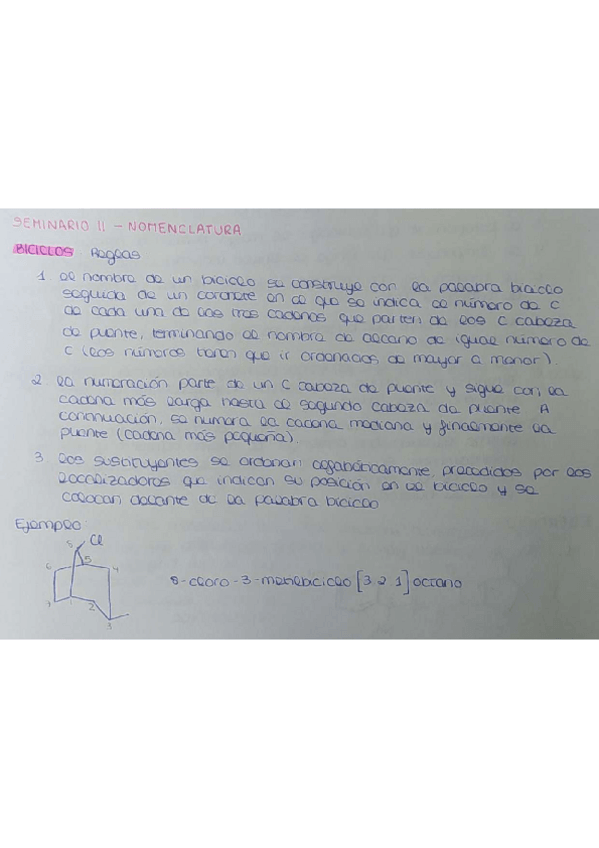 SEMINARIO II - NOMENCLATURA
BICICLOS Reglas
1. el nombre de un biciclo se construye con la palabra biciclo
seguida de un corchete en el que se indica el número de C
de cada una de las tres cadenas que parten de los C cabeza
de puente, terminando el nombre de alcano de igual número de
C (los números tienen que ir ordenados de mayor a menor).
2. la numeración parte de un C cabeza de puente y sigue con la
cadena más larga hasta el segundo cabeza de puente. A
continuación, se numera la cadena mediana y finalmente la
puente (cadena más pequeña).
3 los sustituyentes se ordenan alfabéticamente precedidos por los
localizadores que indican su posición en el biciclo y se
colocan delante de la palabra biciclo
Ejemplo:
8 Cl
6 5 4
7 1 2
3
8-cloro-3-metilbiciclo [3.2.1] octano